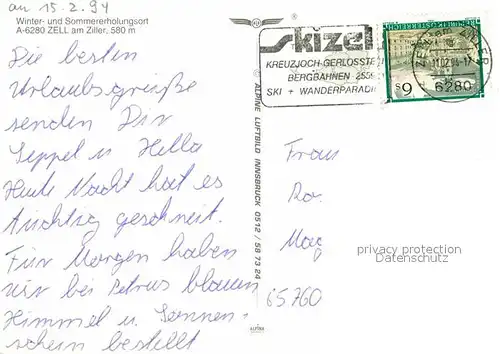 an 15.2.94
Winter- und Sommererholungsort
A-6280 ZELL am Ziller, 580 m
Die besten
Urlaubsgrüße
senden Dir
Seppel u Hella
Heute Nacht hat es
tüchtig geschneit.
Für Morgen haben
wir bei Petrus blauen
Himmel u. Sonnen-
schein bestellt
ALPINE LUFTBILD INNSBRUCK 0512 / 58 73 24
ALPINA
skizell
KREUZJOCH-GERLOSSTE
BERGBAHNEN
SKI + WANDERPARADI
REPUBLIK ÖSTERREICH
S 6
ZELL am ZILLER
11.02.94-17
6280
Frau
Ro
Mag
65760
privacy protection
Datenschutz